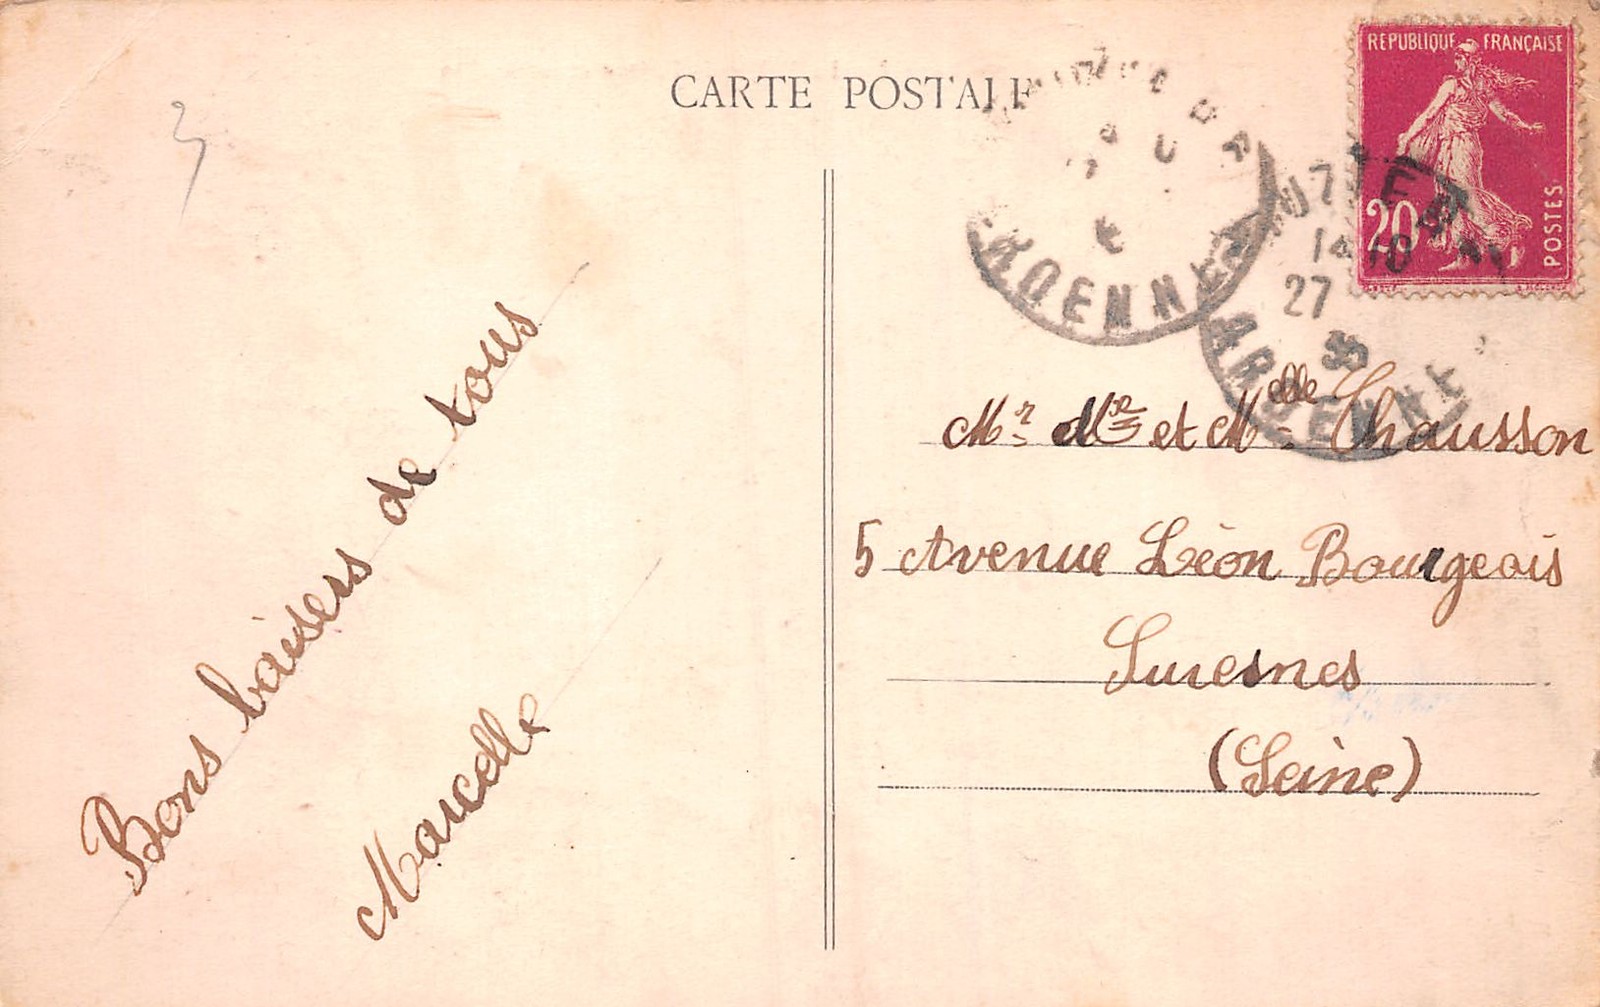 CARTE POSTALE
REPUBLIQUE FRANÇAISE
20
POSTES
14
27
35
ARDENNES
ARDENNE
Bons baisers de tous
Marcelle
Mr Mme et Melle Chausson
5 Avenue Léon Bourgeois
Suresnes
(Seine)